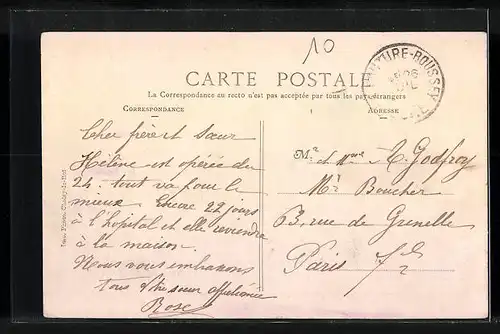 10
COUTURE-BOUSSEY
CARTE POSTALE
La Correspondance au recto n'est pas acceptée par tous les pays étrangers
CORRESPONDANCE
ADRESSE
Cher frère et sœur
Hélène est opérée du
24. tout va pour le
mieux. Encore 22 jours
à l'hopital et elle reviendra
à la maison.
Nous vous embrassons
tous Votre sœur affectionnée
Rose
Mr et Mme A. Godfroy
Mr Boucher
63, rue de Grenelle
Paris 7e